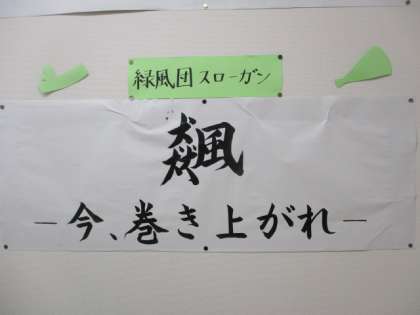 緑風団スローガン
飆
－今、巻き上がれ－